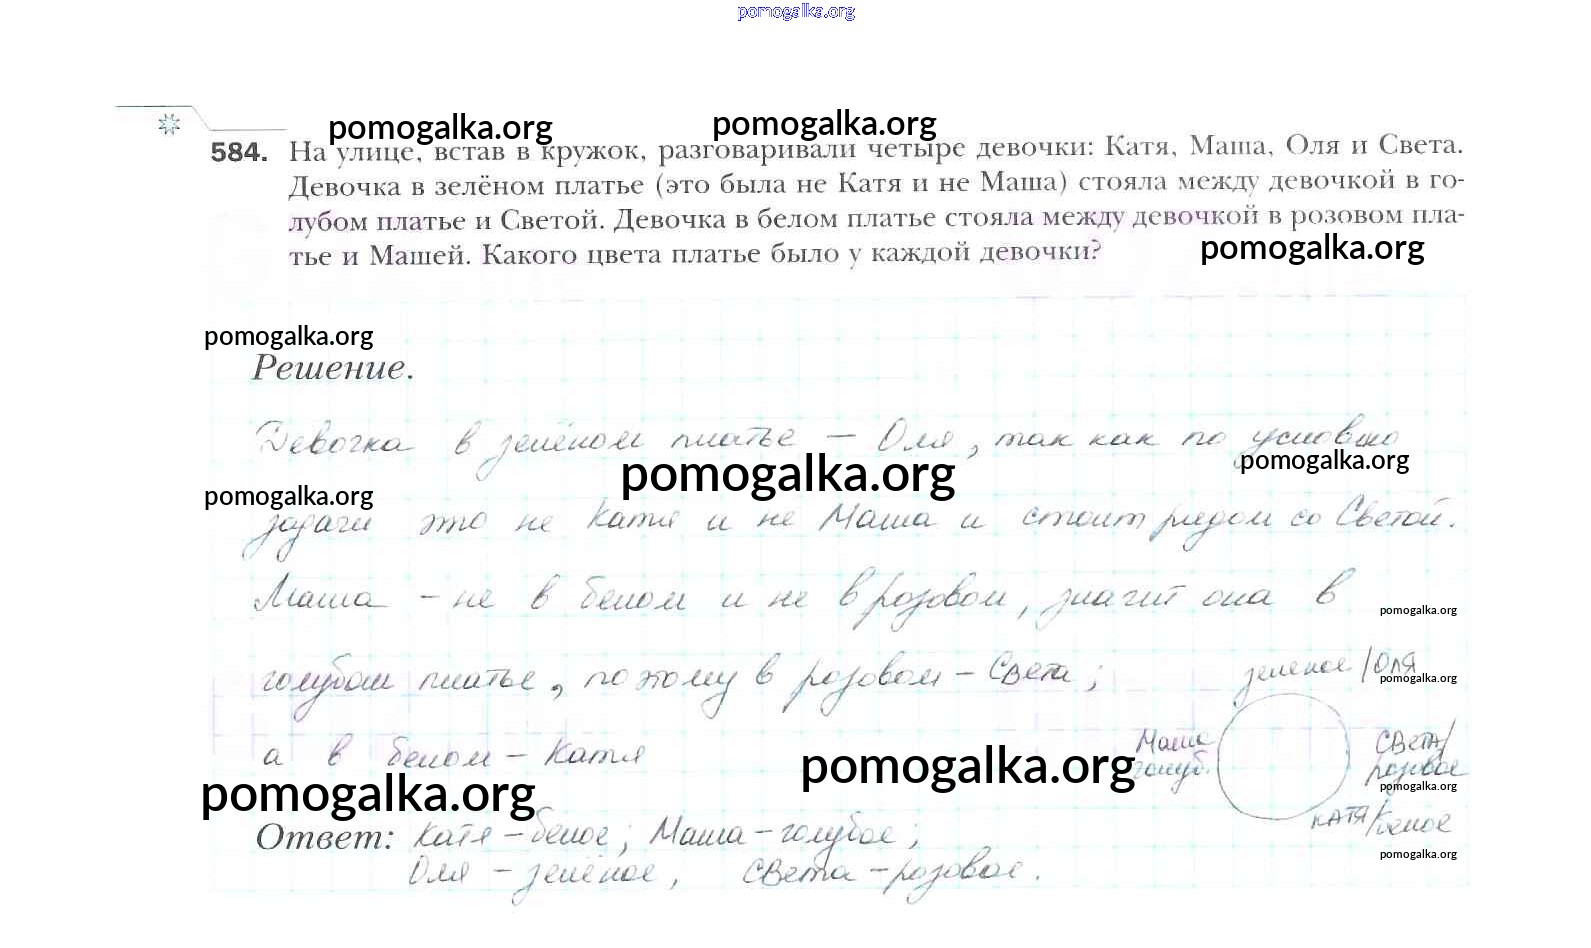 pomogalka.org
pomogalka.org pomogalka.org
584. На улице, встав в кружок, разговаривали четыре девочки: Катя, Маша, Оля и Света.
Девочка в зелёном платье (это была не Катя и не Маша) стояла между девочкой в го-
лубом платье и Светой. Девочка в белом платье стояла между девочкой в розовом пла-
тье и Машей. Какого цвета платье было у каждой девочки?
pomogalka.org
pomogalka.org
Решение.
Девочка в зелёном платье – Оля, так как по условию
pomogalka.org pomogalka.org
pomogalka.org
задачи это не Катя и не Маша и стоит рядом со Светой.
Маша – не в белом и не в розовом, значит она в
pomogalka.org
голубом платье, поэтому в розовом – Света;
зеленое/Оля
pomogalka.org
а в белом – Катя
Маша
голуб.
Света/
розовое
pomogalka.org
pomogalka.org
pomogalka.org
Катя/белое
Ответ: Катя – белое; Маша – голубое;
Оля – зелёное, Света – розовое.
pomogalka.org